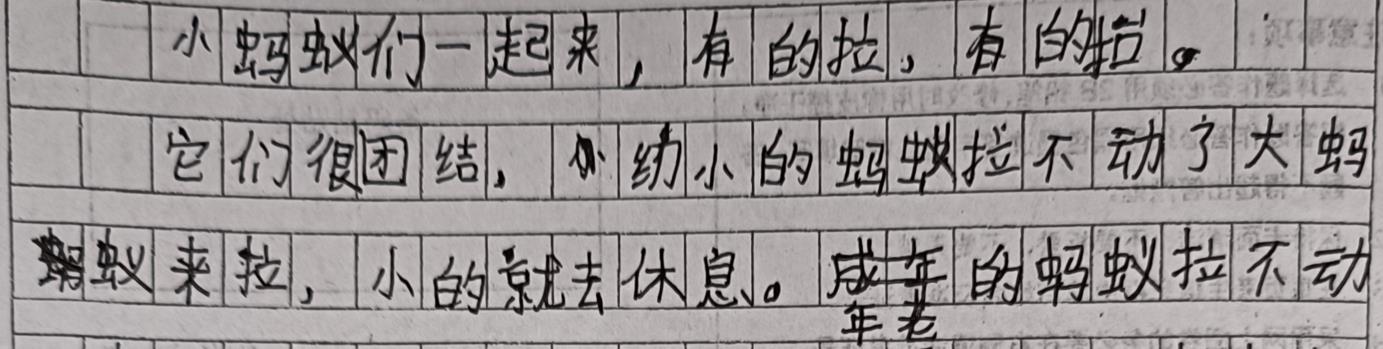 小蚂蚁们一起来，有的拉，有的抬。
它们很团结，幼小的蚂蚁拉不动了大蚂
蚁来拉，小的就去休息。成年的蚂蚁拉不动
年老